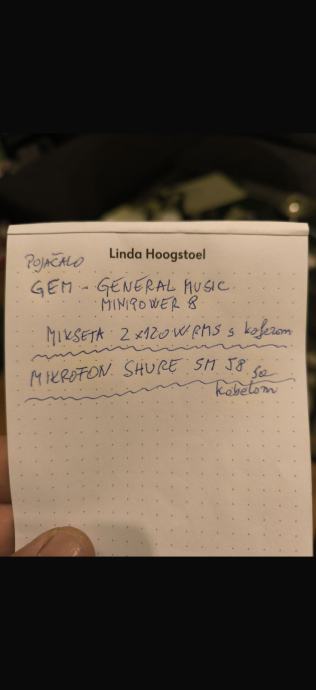 Linda Hoogstoel
POJAČALO
GEM - GENERAL MUSIC
MINIPOWER 8
MIKSETA 2x120W RMS s koferom
MIKROFON SHURE SM 58 sa
kabelom